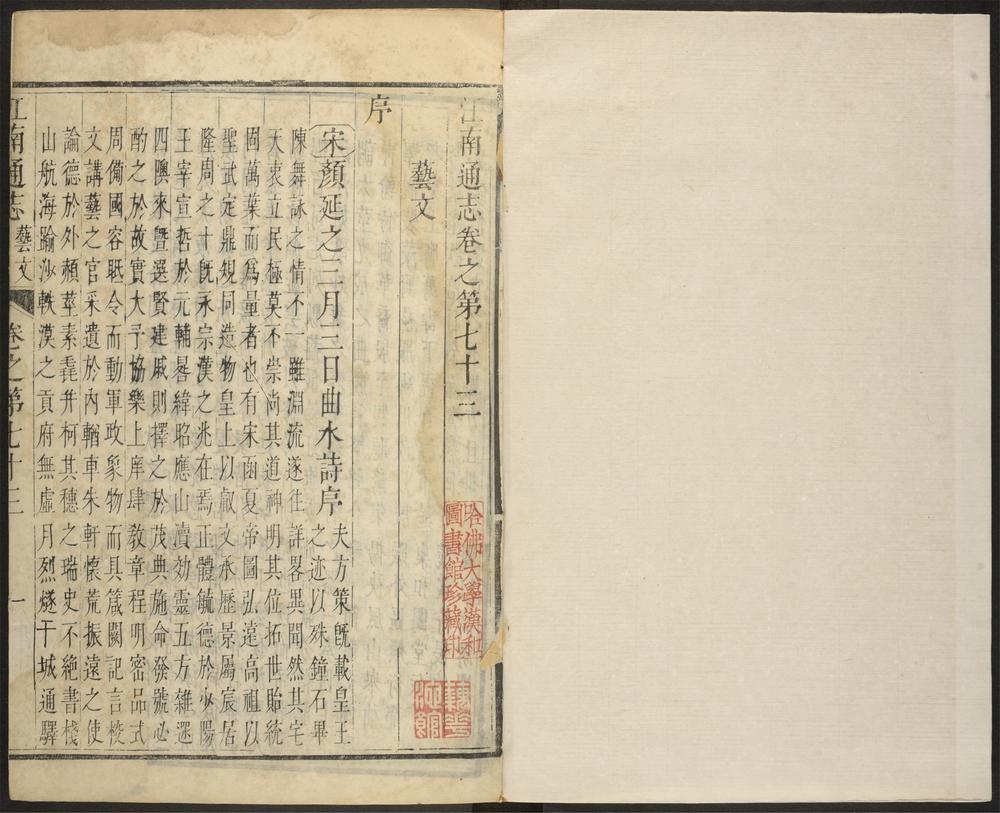 江南通志卷之第七十三
藝文
序
宋顏延之三月三日曲水詩序
夫方策旣載皇王
之迹以殊鐘石畢
陳舞詠之情不一雖淵流遂往詳畧異聞然其宅
天衷立民極莫不崇尚其道神明其位拓世貽統
固萬葉而爲量者也有宋函夏帝圖弘遠高祖以
聖武定鼎規同造物皇上以叡文承歷景屬宸居
隆周之卜旣永宗漢之兆在焉正體毓德於少陽
王宰宣哲於元輔晷緯昭應山瀆効靈五方雜遝
四隩來曁選賢建戚則擇之於茂典施命發號必
酌之於故實大予協樂上庠肆敎章程明密品式
周備國容眡令而動軍政象物而具箴闕記言校
文講藝之官采遺於內輶車朱軒懷荒振遠之使
論德於外赬莖素毳并柯其穗之瑞史不絶書棧
山航海踰沙軼漠之貢府無虛月烈燧干城通驛
江南通志
藝文
卷之第七十三
一
哈佛大學漢和
圖書館珍藏印